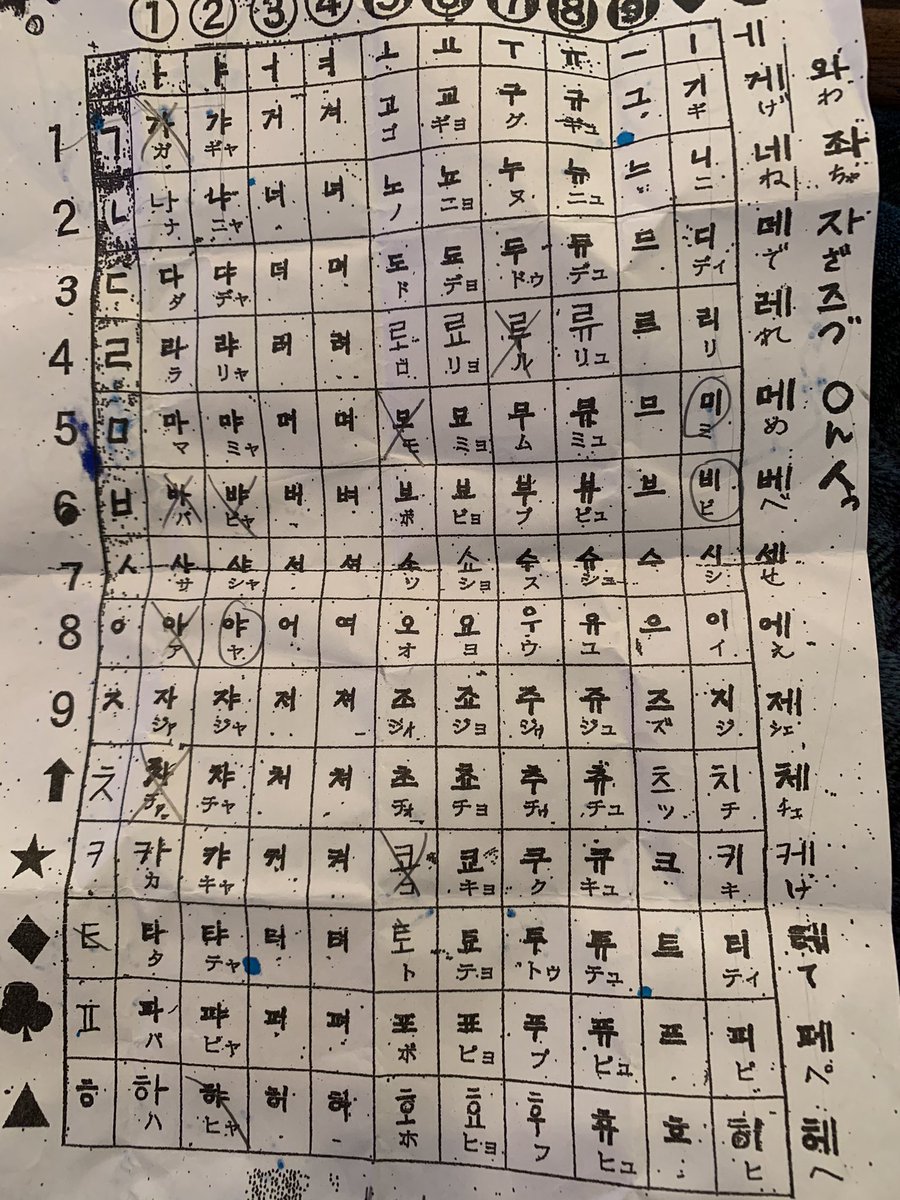 ① ② ③ ④ ⑤ ⑥ ⑦ ⑧ ⑨
ㅏ ㅑ ㅓ ㅕ ㅗ ㅛ ㅜ ㅠ ㅡ ㅣ ㅔ
1 ㄱ 가 갸 거 겨 고 교 구 규 그 기 게 와
ガ ギャ ゴ ギョ グ ギュ ギ げ わ
2 ㄴ 나 냐 너 녀 노 뇨 누 뉴 느 니 네 좌
ナ ニャ ノ ニョ ヌ ニュ ニ ね ちゃ
3 ㄷ 다 댜 더 뎌 도 됴 두 듀 드 디 자
ダ デャ ド デョ ドゥ デュ ディ で ざ
4 ㄹ 라 랴 러 려 로 료 루 류 르 리 레 즈
ラ リャ ロ リョ ル リュ リ れ づ
5 ㅁ 마 먀 머 며 모 묘 무 뮤 므 미 메 ㅇん
マ ミャ モ ミョ ム ミュ ミ め
6 ㅂ 바 뱌 버 벼 보 뵤 부 뷰 브 비 베 ㅅっ
バ ビャ ボ ビョ ブ ビュ ビ べ
7 ㅅ 사 샤 서 셔 소 쇼 수 슈 스 시 세
サ シャ ソ ショ ス シュ シ せ
8 ㅇ 아 야 어 여 오 요 우 유 으 이 에
ア ヤ オ ヨ ウ ユ イ え
9 ㅈ 자 쟈 저 져 조 죠 주 쥬 즈 지 제
ジャ ジャ ジョ ジュ ズ ジ ジェ
ㅊ 차 챠 처 쳐 초 쵸 추 츄 츠 치 체
チャ チャ チョ チュ ツ チ チェ
ㅋ 카 캬 커 켜 코 쿄 쿠 큐 크 키 케
カ キャ コ キョ ク キュ キ げ
ㅌ 타 탸 터 텨 토 툐 투 튜 트 티 테
タ テャ ト テョ トゥ テュ ティ て
ㅍ 파 퍄 퍼 펴 포 표 푸 퓨 프 피 페
パ ピャ ポ ピョ プ ピュ ピ ペ
ㅎ 하 햐 허 혀 호 효 후 휴 흐 히 헤
ハ ヒャ ホ ヒョ フ ヒュ ヒ へ